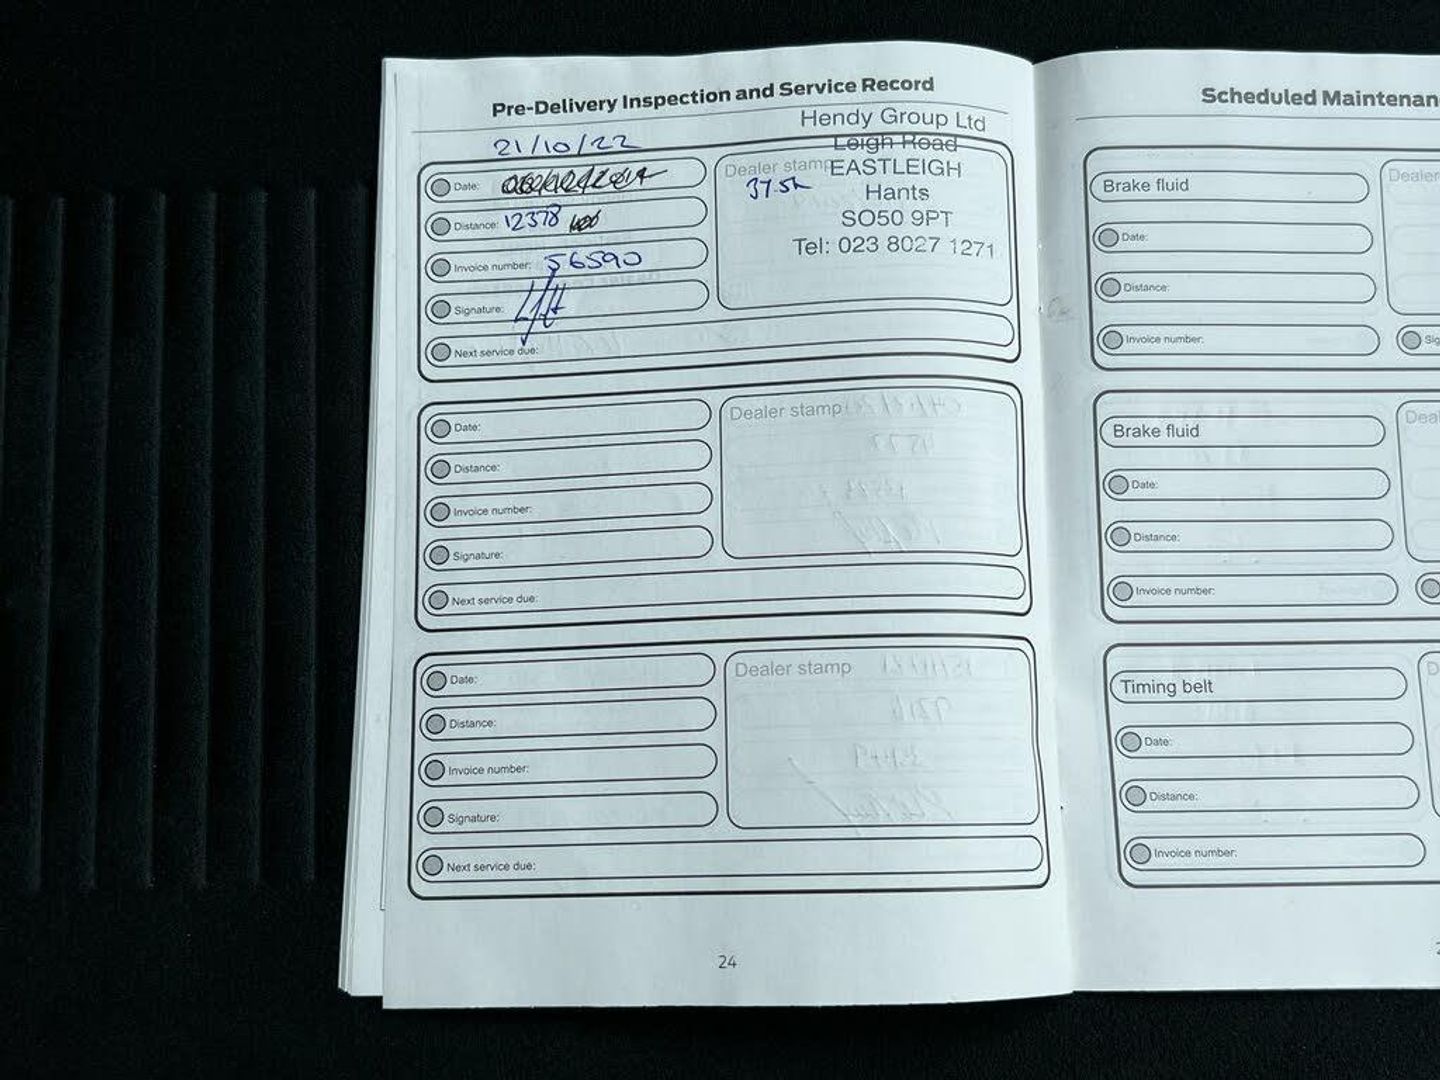 Pre-Delivery Inspection and Service Record
Hendy Group Ltd
Leigh Road
EASTLEIGH
Hants
SO50 9PT
Tel: 023 8027 1271
Dealer stamp
37.5k
21/10/22
Date:
Distance: 12378
Invoice number: 56590
Signature:
Next service due:
Dealer stamp
Date:
Distance:
Invoice number:
Signature:
Next service due:
Dealer stamp
Date:
Distance:
Invoice number:
Signature:
Next service due:
24
Scheduled Maintenan
Brake fluid
Dealer
Date:
Distance:
Invoice number:
Sig
Brake fluid
Deal
Date:
Distance:
Invoice number:
Timing belt
D
Date:
Distance:
Invoice number: